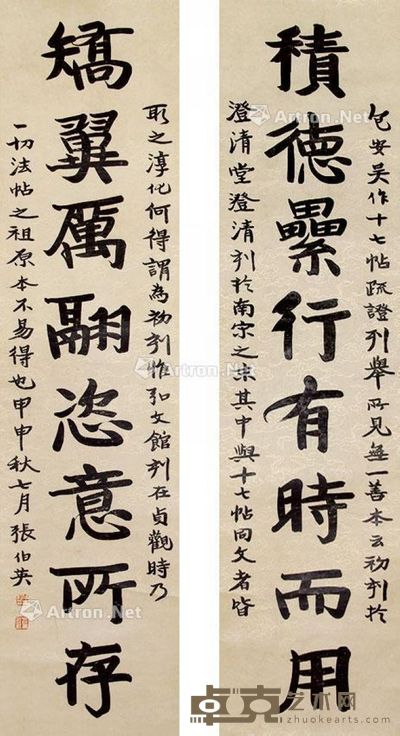 積德纍行有時而用
包安吳作十七帖疏證列舉所見無一善本云初刻於
澄清堂澄清刻於南宋之末其中與十七帖同文者皆
矯翼厲翮恣意所存
取之淳化何得謂為初刻惟弘文館刻在貞觀時乃
一切法帖之祖原本不易得也甲申秋七月張伯英
Artron.Net
Artron.Net
Artron.Net
Artron.Net
Artron.Net
Artron.Net
卓克艺术网
zhuokearts.com